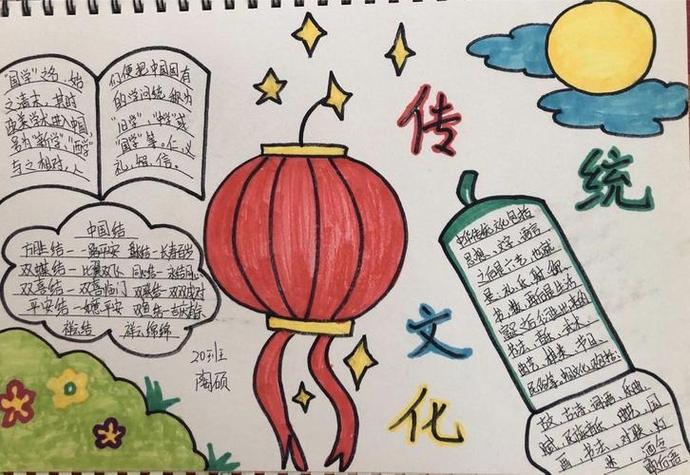 "国学"之名,始
之清末,其时
欧美学术进入中国,
号为"新学""西学"
与之相对,人
们便把中国固有
的学问统称为
"旧学"
"国学"等。仁、义
礼、智、信。
传
统
文
化
中国结
方胜结——一路平安 长寿百岁
双蝶结——比翼双飞 同心结—永结同心
双喜结——双喜临门 双双对对
平安结——一生平安
祥结 绵绵
203班
陶硕
中华传统文化包括
思想、文字、语言
之后是六艺,也就
是:礼、乐、射、御、
书、数,再后是生活
富足之后衍生出来的
书法、音乐、武术、
曲艺、棋类、节日、
民俗等。
故、古诗、词语、乐曲、
赋、民族音乐、曲艺、国
画、书法、对联、灯
谜、酒令、
歇后语